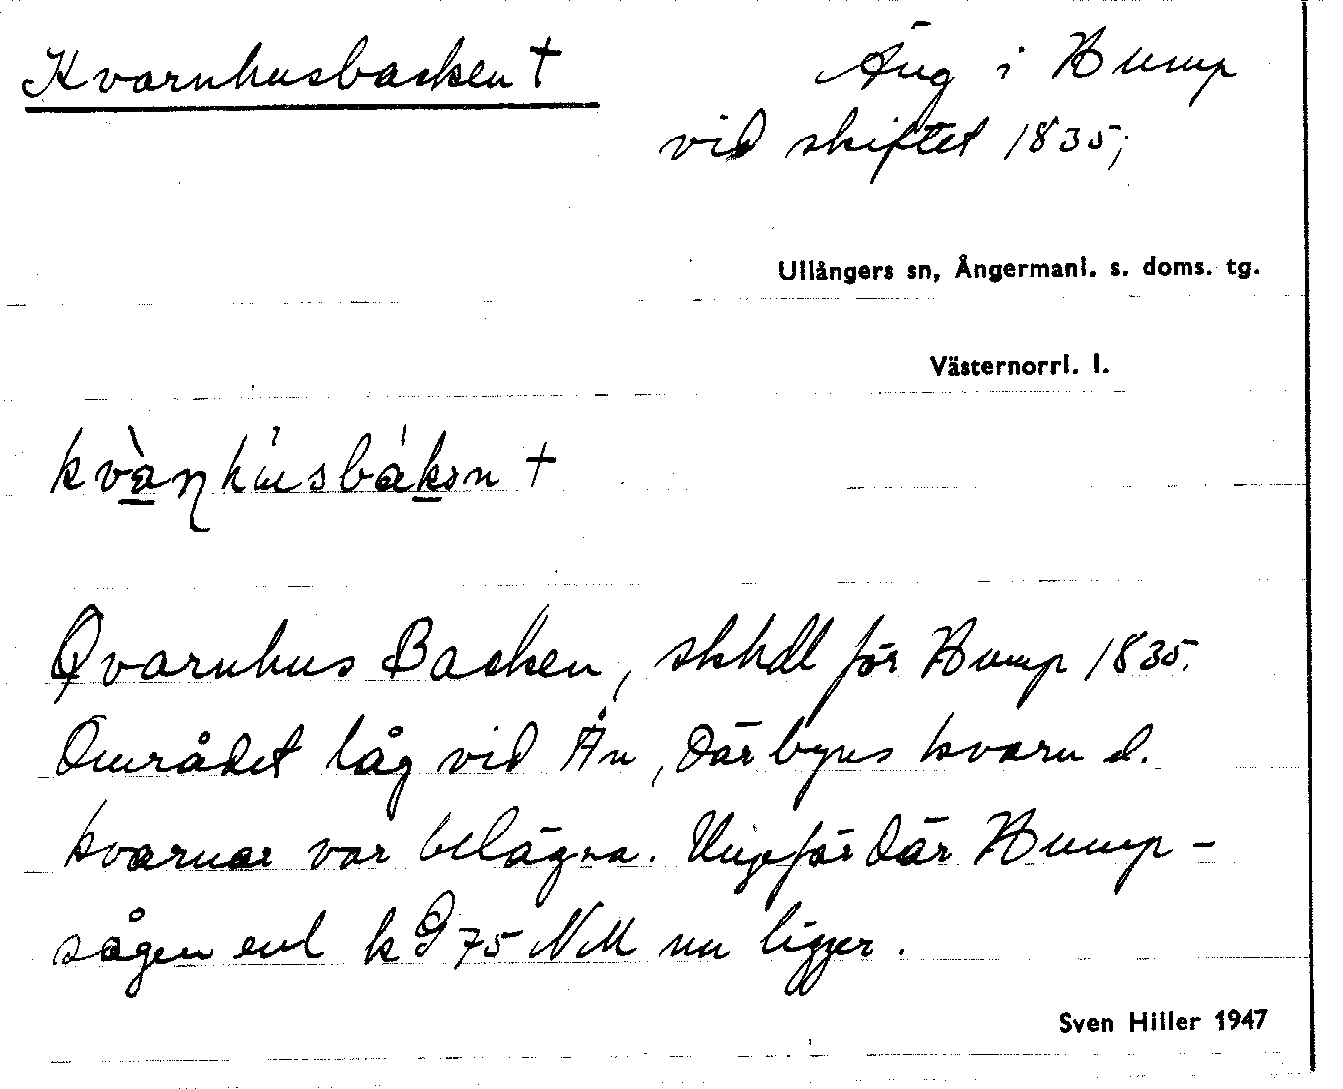 Kvarnhusbacken †
Äng i Hump
vid skiftet 1835;
Ullångers sn, Ångermanl. s. doms. tg.
Västernorrl. l.
kvàɳhúsbákən †
Qvarnhus Backen, skhdl för Hump 1835.
Området låg vid Ån, där byns kvarn d.
kvarnar var belägna. Ungefär där Hump-
sågen enl k G 75 NM nu ligger.
Sven Hiller 1947